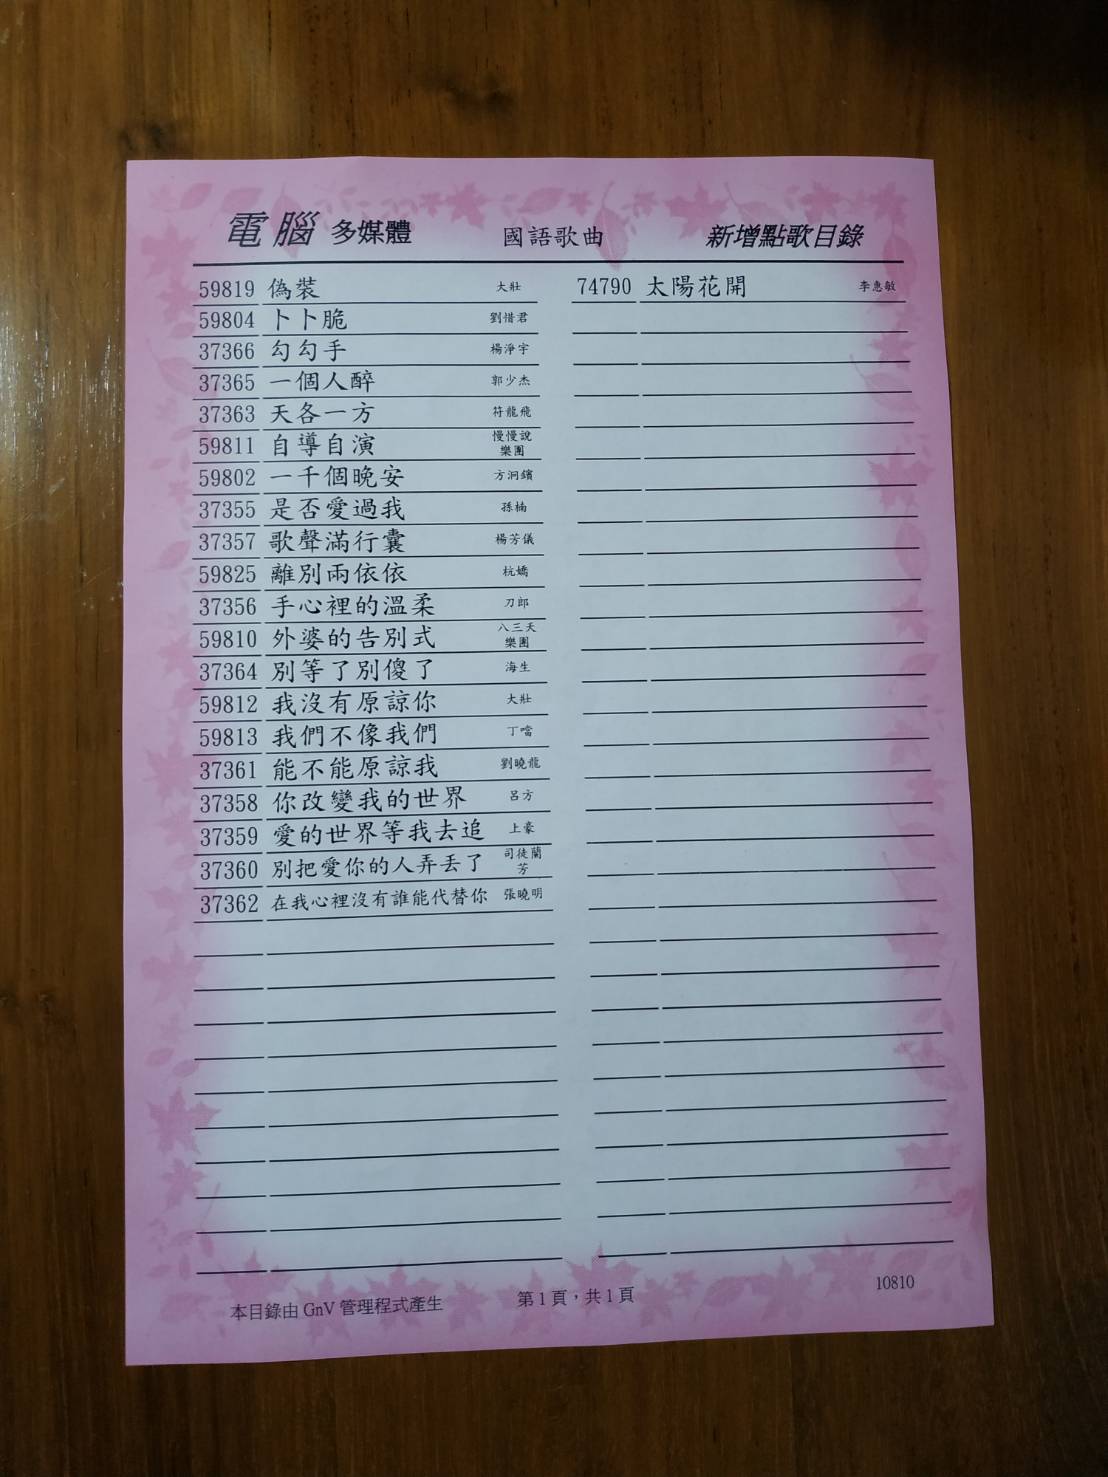 電腦 多媒體 國語歌曲 新增點歌目錄
59819 偽裝 大壯
59804 卜卜脆 劉惜君
37366 勾勾手 楊淨宇
37365 一個人醉 郭少杰
37363 天各一方 符龍飛
59811 自導自演 慢慢說樂團
59802 一千個晚安 方泂鑌
37355 是否愛過我 孫楠
37357 歌聲滿行囊 楊芳儀
59825 離別兩依依 杭嬌
37356 手心裡的溫柔 刀郎
59810 外婆的告別式 八三夭樂團
37364 別等了別傻了 海生
59812 我沒有原諒你 大壯
59813 我們不像我們 丁噹
37361 能不能原諒我 劉曉龍
37358 你改變我的世界 呂方
37359 愛的世界等我去追 上豪
37360 別把愛你的人弄丟了 司徒蘭芳
37362 在我心裡沒有誰能代替你 張曉明
74790 太陽花開 李惠敏
本目錄由 GnV 管理程式產生 第1頁，共1頁 10810